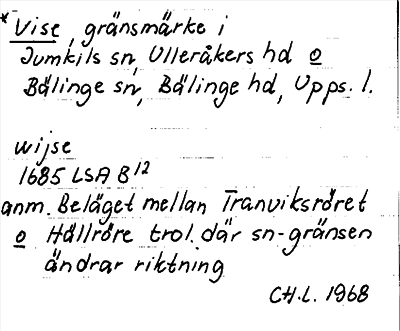 *Vise, gränsmärke i
Jumkils sn, Ulleråkers hd o
Bälinge sn, Bälinge hd, Upps. l.
wijse
1685 LSA B12
anm. Beläget mellan Tranviksröret
o Hällröre trol. där sn-gränsen
ändrar riktning
CH.L. 1968